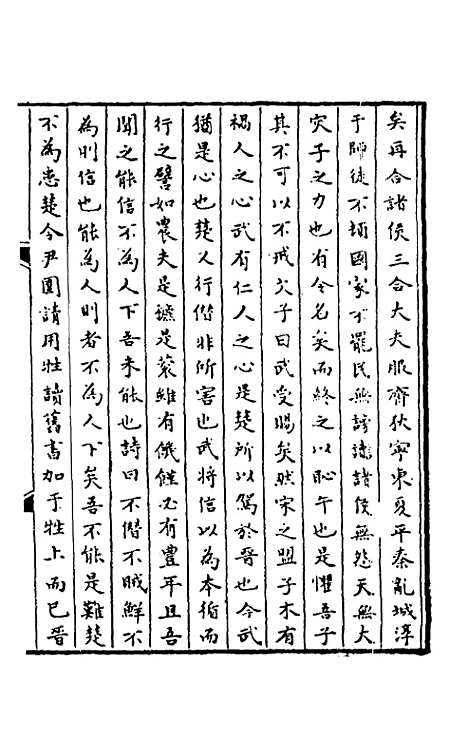 矣再合諸侯三合大夫服齊狄寧東夏平秦亂城淳
于師徒不頓國家不罷民無謗讟諸侯無怨天無大
灾子之力也有令名矣而終之以恥午也是懼吾子
其不可以不戒文子曰武受賜矣然宋之盟子木有
禍人之心武有仁人之心是楚所以駕於晉也今武
猶是心也楚人行僭非所害也武將信以為本循而
行之譬如農夫是穮是蓘雖有饑饉必有豊年且吾
聞之能信不為人下吾未能也詩曰不僭不賊鮮不
為則信也能為人則者不為人下矣吾不能是難楚
不為患楚令尹圍請用牲讀舊書加于牲上而已晉